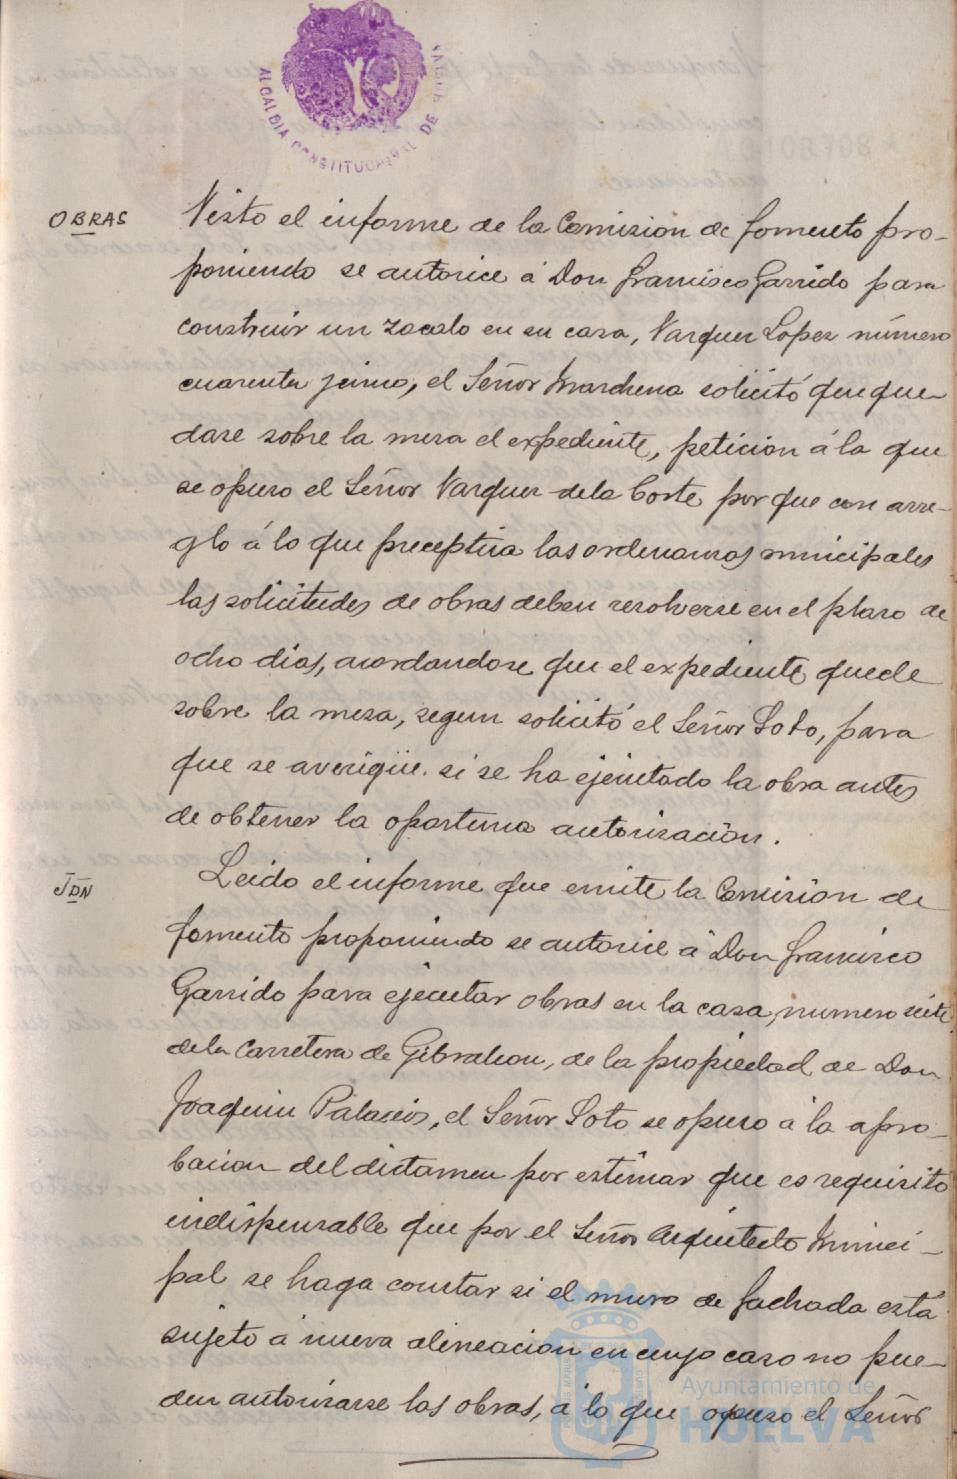 ALCALDIA CONSTITUCIONAL DE
OBRAS
Visto el informe de la Comision de fomento pro-
poniendo se autorice á Don Francisco Garrido para
construir un zocalo en su casa, Vazquez Lopez número
cuarenta y cinco, el Señor Marchena solicitó que que-
dase sobre la mesa el expediente, peticion á la que
se opuso el Señor Vazquez de la Corte por que con arre-
glo á lo que preceptúa las ordenanzas municipales
las solicitudes de obras deben resolverse en el plazo de
ocho dias, acordandose que el expediente quede
sobre la mesa, segun solicitó el Señor Soto, para
que se averigüe si se ha ejecutado la obra antes
de obtener la oportuna autorizacion.
IDN
Leido el informe que emite la Comision de
fomento proponiendo se autorice á Don Francisco
Garrido para ejecutar obras en la casa, numero siete
de la Carretera de Gibraleon, de la propiedad de Don
Joaquin Palacios, el Señor Soto se opuso á la apro-
bacion del dictamen por estimar que es requisito
indispensable que por el Señor Arquitecto Munici-
pal se haga constar si el muro de fachada está
sujeto á nueva alineacion en cuyo caso no pue-
den autorizarse las obras, á lo que opuso el Señor
Ayuntamiento de
HUELVA